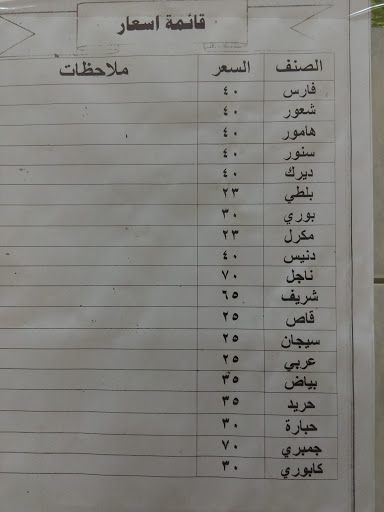 قائمة اسعار
الصنف السعر ملاحظات
فارس ٤٠
شعور ٤٠
هامور ٤٠
سنور ٤٠
ديرك ٤٠
بلطي ٢٣
بوري ٣٠
مكرل ٢٣
دنيس ٤٠
ناجل ٧٠
شريف ٦٥
قاص ٢٥
سيجان ٢٥
عربي ٢٥
بياض ٣٥
حريد ٣٥
حبارة ٣٠
جمبري ٧٠
كابوري ٣٠